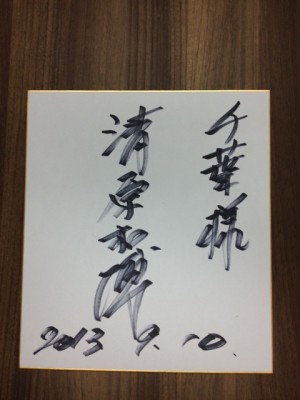 千葉様
清原和博
2013 9.10.